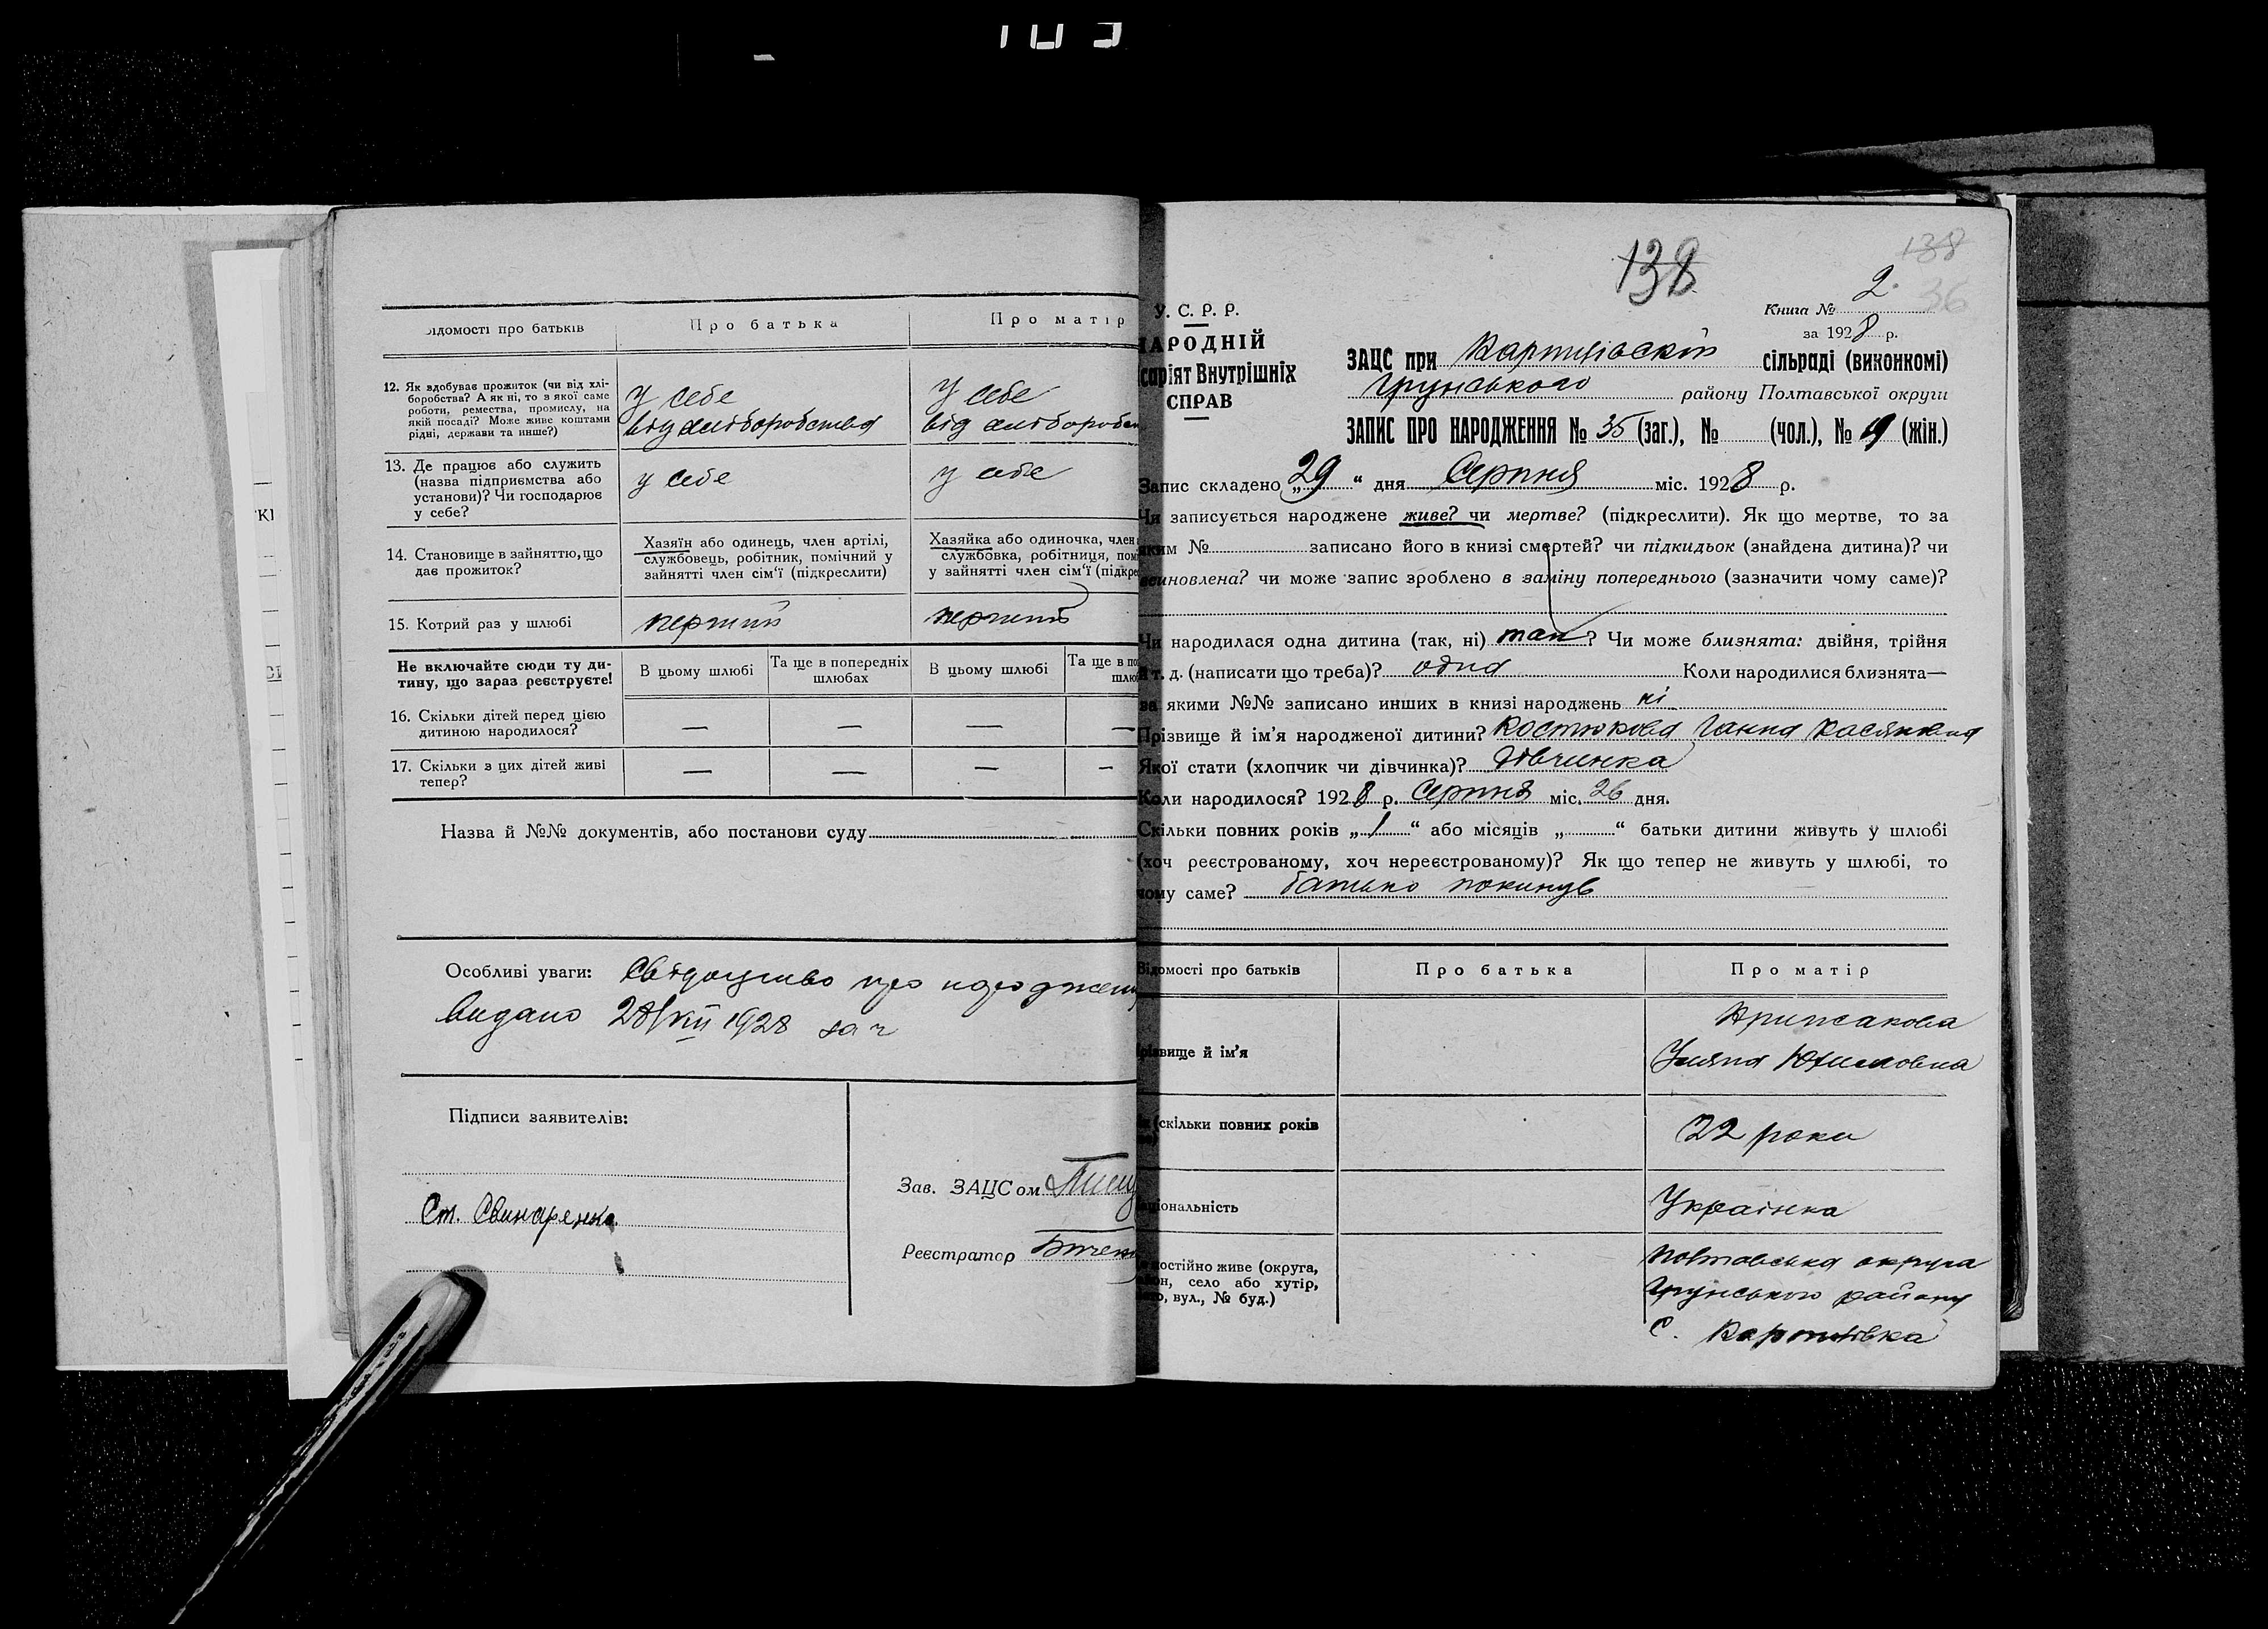 103
відомості про батьків
Про батька
Про матір
12. Як здобуває прожиток (чи від хлі-
боробства? А як ні, то з якої саме
роботи, ремества, промислу, на
якій посаді? Може живе коштами
рідні, держави та инше?)
у себе
від хліборобства
у себе
від хлібороб
13. Де працює або служить
(назва підприємства або
установи)? Чи господарює
у себе?
у себе
у себе
14. Становище в зайняттю, що
дає прожиток?
Хазяїн або одинець, член артілі,
службовець, робітник, помічний у
зайнятті член сім'ї (підкреслити)
Хазяйка або одиночка, член
службовка, робітниця, пом
у зайнятті член сім'ї (підкре
15. Котрий раз у шлюбі
перший
перший
Не включайте сюди ту ди-
тину, що зараз реєструєте!
В цьому шлюбі
Та ще в попередніх
шлюбах
В цьому шлюбі
Та ще в по
шлю
16. Скільки дітей перед цією
дитиною народилося?
— — — —
17. Скільки з цих дітей живі
тепер?
— — — —
Назва й №№ документів, або постанови суду
Особливі уваги: Свідоцтво про народжен
Видано 28/VIII 1928
Підписи заявителів:
Ст. Свинаренко
Зав. ЗАЦСом
Реєстратор
138
138
36
У. С. Р. Р.
НАРОДНІЙ
саріят Внутрішніх
СПРАВ
Книга № 2
за 1928 р.
ЗАЦС при сільраді (виконкомі)
Грунського району Полтавської округи
ЗАПИС ПРО НАРОДЖЕННЯ № 35 (заг.), № (чол.), № 19 (жін.)
Запис складено „29“ дня Серпня міс. 1928 р.
Чи записується народжене живе? чи мертве? (підкреслити). Як що мертве, то за
яким № записано його в книзі смертей? чи підкидьок (знайдена дитина)? чи
всиновлена? чи може запис зроблено в заміну попереднього (зазначити чому саме)?
Чи народилася одна дитина (так, ні) так? Чи може близнята: двійня, трійня
й т. д. (написати що треба)? одна Коли народилися близнята—
за якими №№ записано инших в книзі народжень ні
Прізвище й ім'я народженої дитини? Костюкова Ганна Касянівна
Якої стати (хлопчик чи дівчинка)? дівчинка
Коли народилося? 1928 р. Серпня міс. 26 дня.
Скільки повних років „1“ або місяців „ “ батьки дитини живуть у шлюбі
(хоч реєстрованому, хоч нереєстрованому)? Як що тепер не живуть у шлюбі, то
чому саме? батько покинув
Відомості про батьків
Про батька
Про матір
різвище й ім'я
Уляна Юхимовна
(скільки повних років
22 роки
ціональність
Українка
постійно живе (округа,
йон, село або хутір,
вул., № буд.)
Полтавська округа
Грунського району
с.